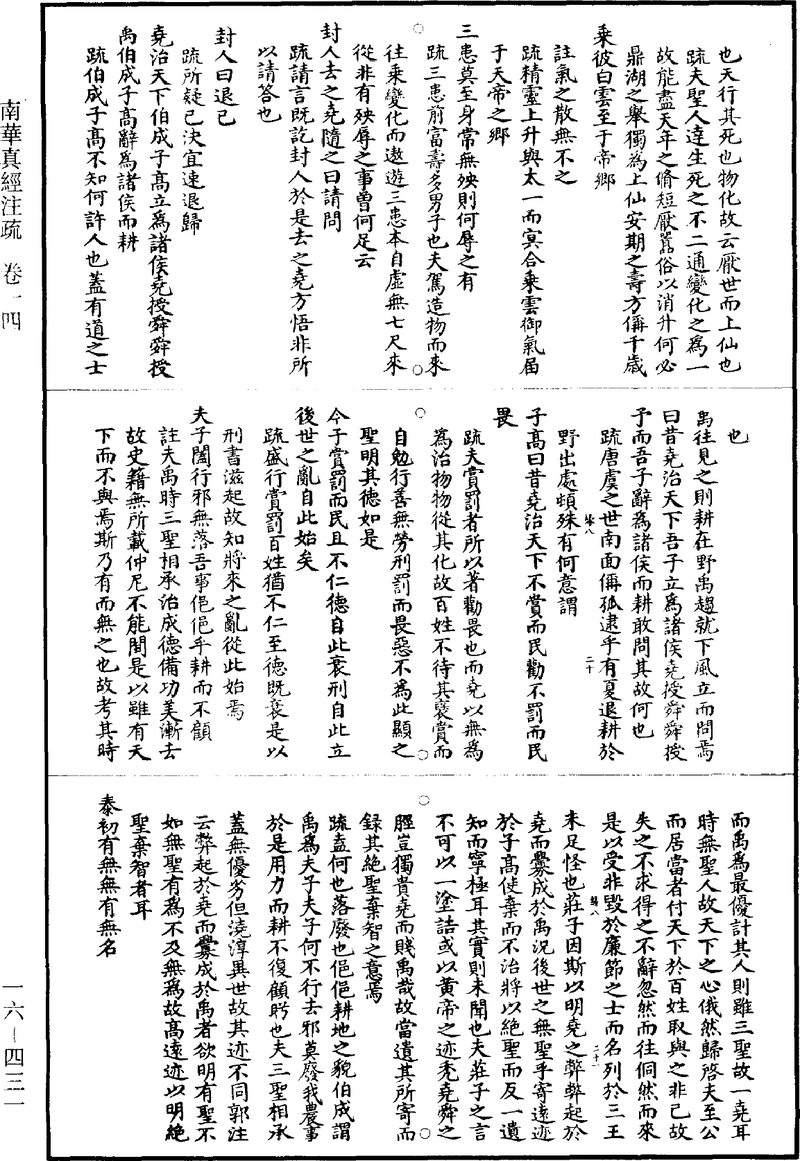 南華真經注疏　卷一四
也天行其死也物化故云厭世而上仙也
疏夫聖人達生死之不二通變化之為一
故能盡天年之脩短厭囂俗以消升何必
鼎湖之舉獨為上仙安期之壽方偁千歲
乘彼白雲至于帝鄉
註氣之散無不之
疏精靈上升與太一而冥合乘雲御氣届
于天帝之鄉
三患莫至身常無殃則何辱之有
疏三患前富壽多男子也夫駕造物而來
往乘變化而遨遊三患本自虛無七尺來
從非有殃辱之事曾何足云
封人去之堯隨之曰請問
疏請言既訖封人於是去之堯方悟非所
以請荅也
封人曰退已
疏所疑已決宜速退歸
堯治天下伯成子髙立為諸侯堯授舜舜授
禹伯成子髙辭為諸侯而耕
疏伯成子髙不知何許人也蓋有道之士
也
禹往見之則耕在野禹趨就下風立而問焉
曰昔堯治天下吾子立為諸侯堯授舜舜授
予而吾子辭為諸侯而耕敢問其故何也
疏唐虞之世南面偁孤逮乎有夏退耕於
野出處頓殊有何意謂
子髙曰昔堯治天下不賞而民勸不罰而民
畏
疏夫賞罰者所以著勸畏也而堯以無為
為治物物從其化故百姓不待其襃賞而
自勉行善無勞刑罰而畏惡不為此顯之
聖明其德如是
今子賞罰而民且不仁德自此衰刑自此立
後世之亂自此始矣
疏盛行賞罰百姓猶不仁至德既衰是以
刑書滋起故知將來之亂從此始焉
夫子闔行邪無落吾事俋俋乎耕而不顧
註夫禹時三聖相承治成德備功美漸去
故史籍無所載仲尼不能閒是以雖有天
下而不與焉斯乃有而無之也故考其時
而禹為最優計其人則雖三聖故一堯耳
時無聖人故天下之心俄然歸啓夫至公
而居當者付天下於百姓取與之非己故
失之不求得之不辭忽然而往侗然而來
是以受非毀於廉節之士而名列於三王
未足怪也莊子因斯以明堯之弊弊起於
堯而釁成於禹況後世之無聖乎寄遠迹
於子髙使棄而不治將以絕聖而反一遺
知而寧極耳其實則未聞也夫莊子之言
不可以一塗詰或以黃帝之迹禿堯舜之
脛豈獨貴堯而賤禹哉故當遺其所寄而
録其絕聖棄智之意焉
疏盍何也落廢也俋俋耕地之貌伯成謂
禹為夫子夫子何不行去邪莫廢我農事
於是用力而耕不復顧眄也夫三聖相承
蓋無優劣但澆淳異世故其迹不同郭注
云弊起於堯而釁成於禹者欲明有聖不
如無聖有為不及無為故髙遠迹以明絕
聖棄智者耳
泰初有無無有無名
一六—四三一